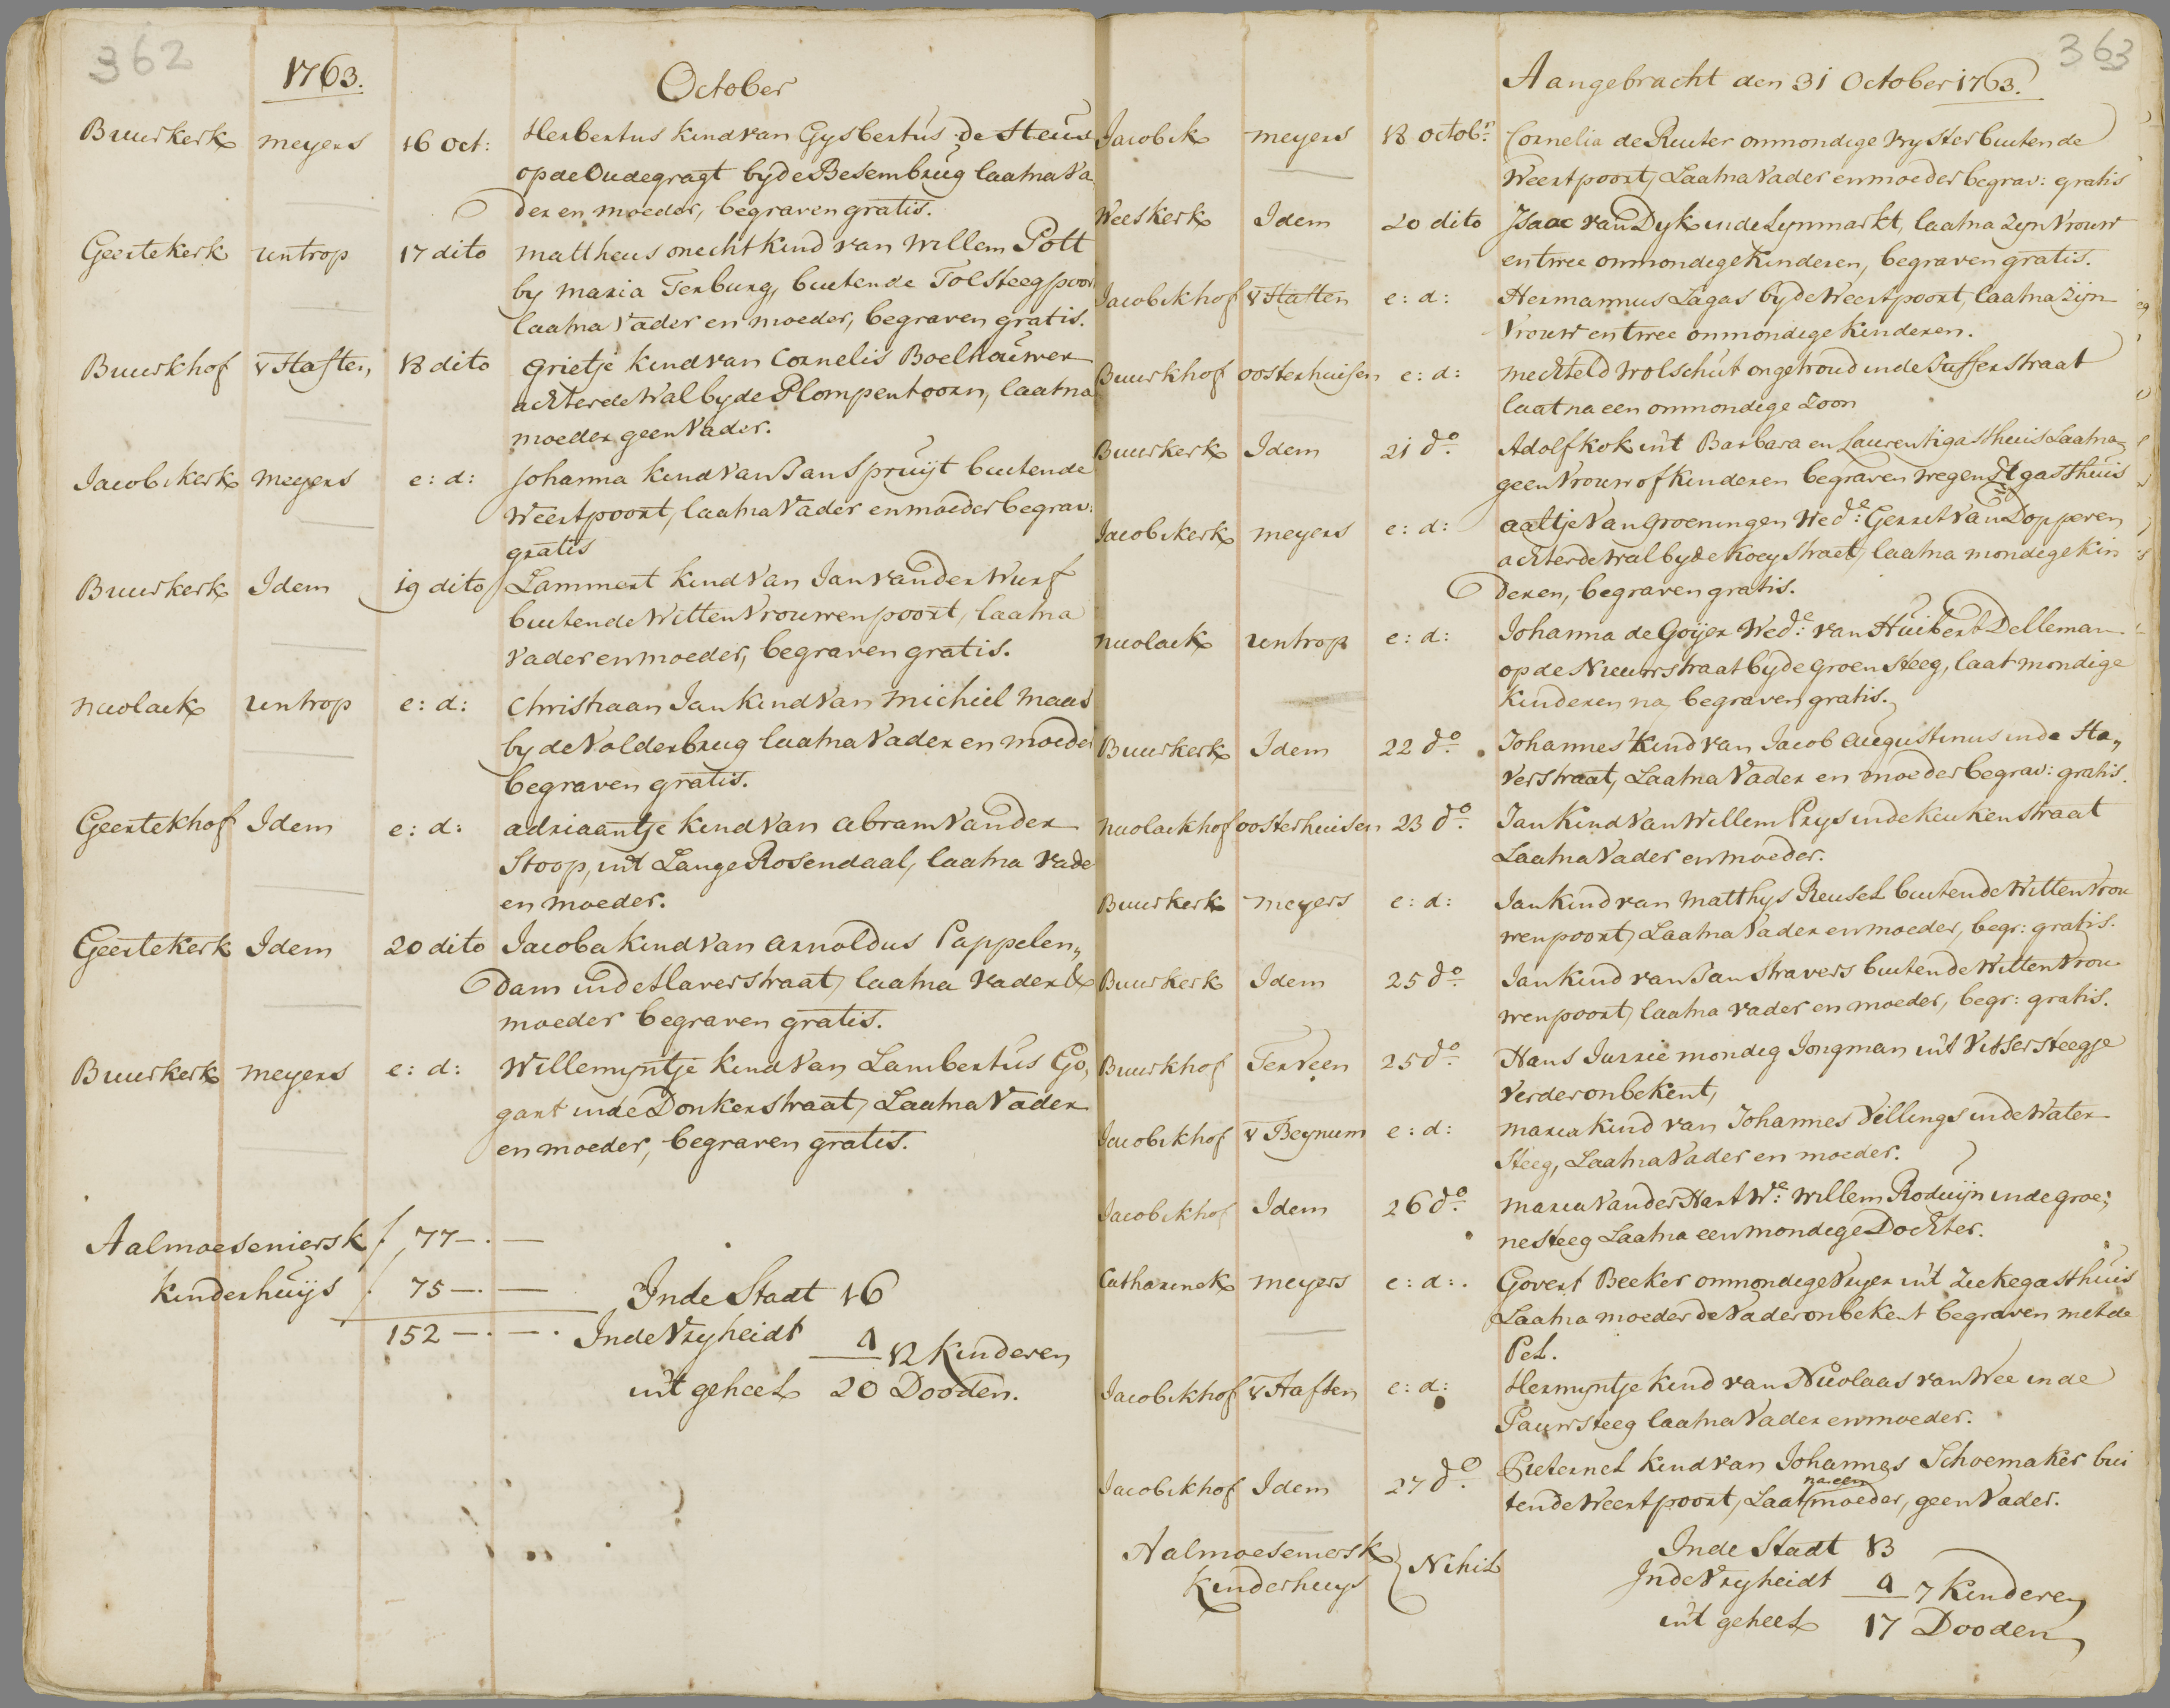 362
1763.
October
Buurkerk meyers 16 oct: Herbertus kind van Gysbertus de Steur
op de Oudegragt by de Besembrug laatna Va
der en moeder, begraven gratis.
Geertekerk untrop 17 dito mattheus onecht kind van Willem Pott
by maria Terburg, buiten de Tolsteegpoor
laatna Vader en moeder, begraven gratis.
Buurkhof v Haften, 18 dito grietje kind van Cornelis Boelhouwer
achter de Wal by de Plompentoorn, laatna
moeder geen Vader.
Jacobikerk meyers e: d: Johanna kind van Jan Spruijt buiten de
Weertpoort, laatna Vader en moeder begrav:
gratis
Buurkerk Idem 19 dito Lammert kind van Jan van der Wurf
buiten de Witten Vrouwenpoort, laatna
Vader en moeder, begraven gratis.
nicolaik untrop e: d: Christiaan Jan kind van michiel maas
by de Volderbrug laatna Vader en moeder
begraven gratis.
Geertekhof Idem e: d: adriaantje kind van abram van der
Stoop, int Lange Rosendaal, laatna Vade
en moeder.
Geertekerk Idem 20 dito Jacoba kind van arnoldus Pappelen„
dam in de Haverstraat, laatna Vader &
moeder begraven gratis.
Buurkerk meyers e: d: Willemyntje kind van Lambertus Go,
gart in de Donkerstraat, Laatna Vader
en moeder, begraven gratis.
Aalmoeseniersk f 77 —. —
kinderhuijs f 75 —. —
152 —. —.
In de Stadt 16
In de Vryheidt 4 12 kinderen
int geheel 20 Dooden.
363
Aangebracht den 31 October 1763.
Jacobik meyers 18 octobr. Cornelia de Ruiter onmondige vryster buiten de
Weertpoort, Laatna Vader en moeder begrav: gratis
Weeskerk Idem 20 dito Isaac van Dyk in de Lynmarkt, laatna zyn Vrouw
en twee onmondige kinderen, begraven gratis.
Jacobikhof v Haften e: d: Hermannus Lagas by de Weertpoort, laatna zijn
Vrouw en twee onmondige kinderen.
Buurkhof oosterhuisen e: d: mechteld Wolschut ongetroud in de Jufferstraat
laat na een onmondige Zoon
Buurkerk Idem 21 do. Adolf kok int Barbara en Laurentigasthuis Laatna
geen Vrouw of kinderen begraven wegens 't gasthuis
Jacobikerk meyers e: d: aaltje van Groeningen Wede: Gerrit van Dopperen
achter de wal by de Koeystraet, laatna mondige kin
deren, begraven gratis.
nicolaik untrop e: d: Johanna de Goijer Wede: van Huibert Delleman
op de Nieuwstraat by de groensteeg, laat mondige
kinderen na, begraven gratis.
Buurkerk Idem 22 do. Johannes kind van Jacob augustinus in de Ha„
verstraat, Laatna Vader en moeder begrav: gratis.
nicolaikhof oosterhuisen 23 do. Jan kind van Willem Prys in de keukenstraat
Laatna Vader en moeder.
Buurkerk meyers e: d: Jan kind van Matthys Reusel buiten de Witten Vrou
wenpoort, Laatna Vader en moeder, begr: gratis.
Buurkerk Idem 25 do. Jan kind van Jan Stravers buiten de Witten Vrou
wenpoort, laatna vader en moeder, begr: gratis.
Buurkhof Terveen 25 do. Hans Jurrie mondig Jongman int Vissersteegje
Verder onbekent,
Jacobikhof v Beynum e: d: maria kind van Johannes Villings in de Water
Steeg, Laatna Vader en moeder.
Jacobikhof Idem 26 do. maria van der Hart We: Willem Roduijn in de groe„
nesteeg Laatna een mondige Dochter.
Catharinek meyers e: d: Govert Beeker onmondige Vryer int Ziekegasthuis
Laatna moeder de Vader onbekent begraven met de
Pel.
Jacobikhof v Haften e: d: Hermyntje kind van Nicolaas van Wee in de
Pauwsteeg laatna Vader en moeder.
Jacobikhof Idem 27 do. Pieternel kind van Johannes Schoemaker bui
ten de Weertpoort, Laat na een moeder, geen Vader.
Aalmoeseniersk
Kinderhuys } Nihil
In de Stadt 13
In de Vryheidt 4 7 kinderen
int geheel 17 Dooden